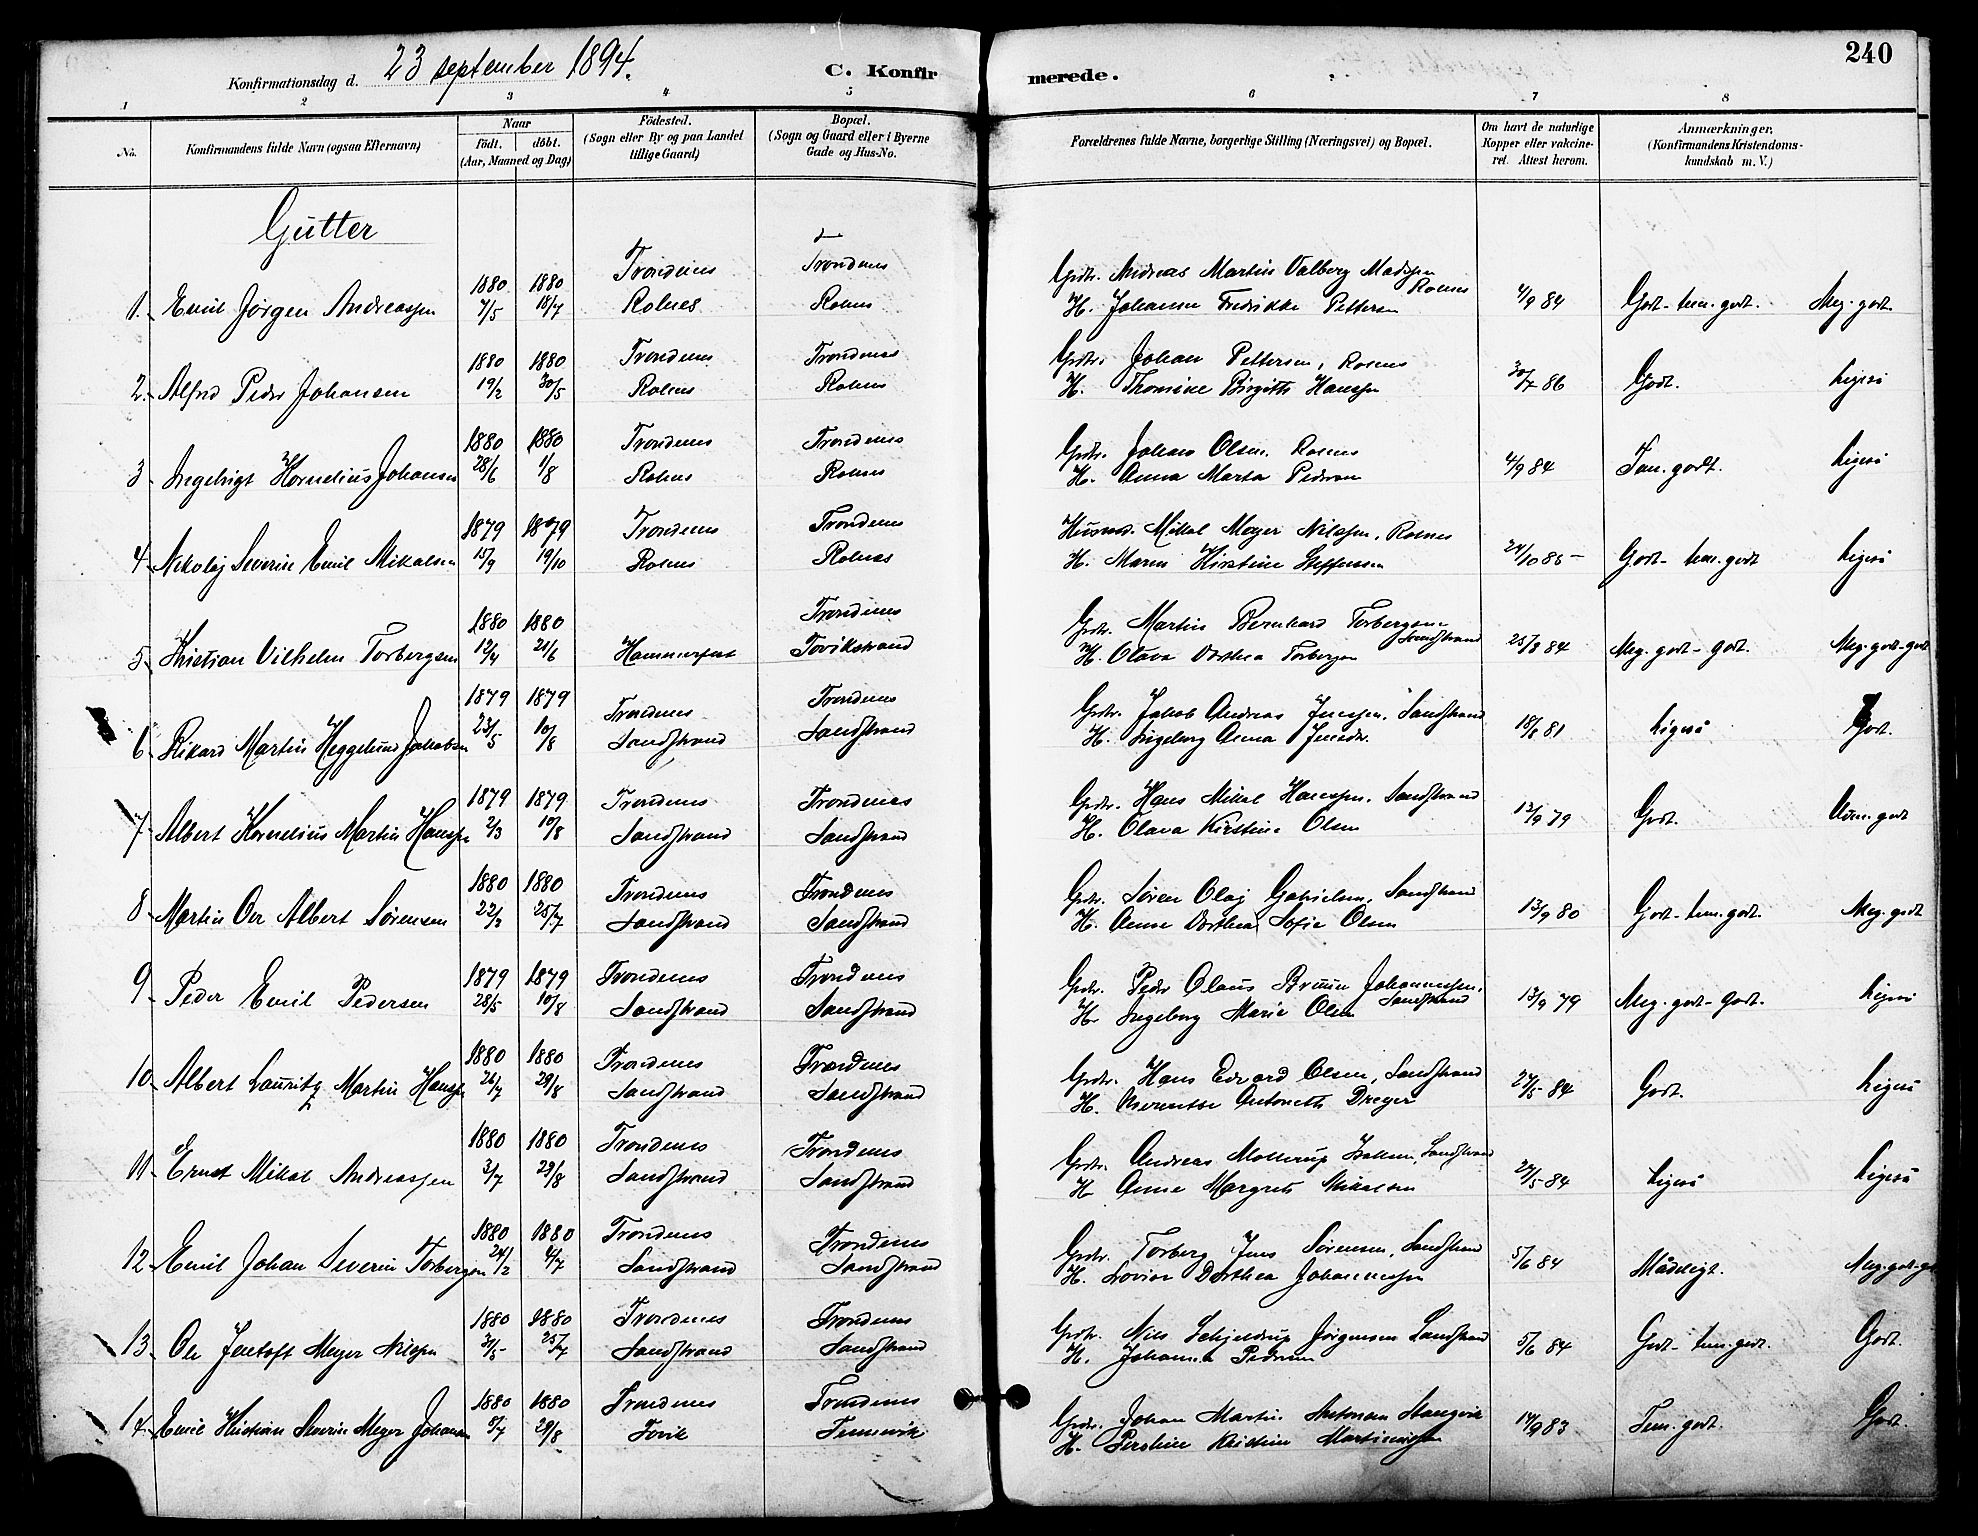 240
Konfirmationsdag d. 23 september 1894.
C. Konfirmerede.
1 2 3 4 5 6 7 8
No.
Konfirmandens fulde Navn (ogsaa Efternavn)
Naar
födt. döbt.
(Aar, Maaned og Dag)
Födested.
(Sogn eller By og paa Landet
tillige Gaard)
Bopæl.
(Sogn og Gaard eller i Byerne
Gade og Hus-No.
Forældrenes fulde Navne, borgerlige Stilling (Næringsvei) og Bopæl.
Om havt de naturlige
Kopper eller vakcine-
ret. Attest herom.
Anmærkninger,
(Konfirmandens Kristendoms-
kundskab m. V.)
Gutter
1880 1880 Trondenes Trondenes Grdr. Andreas Martin Valberg Madsen
1. Emil Jörgen Andreassen 7/5 18/7 Rolnes Rolnes H. Johanna Fredrikke Pettersen Rolnes 4/9 84 Godt-tem. godt. Meg. godt.
1880 1880 Trondenes Trondenes Grdr. Johan Pettersen, Rolnes
2. Alfred Peder Johansen 19/2 30/5 Rolnes Rolnes H. Thomine Birgitte Hanssen 30/7 86 Godt. Ligeså
1880 1880 Trondenes Trondenes Grdr. Johan Olsen. Rolnes
3 Ingebrigt Kornelius Johansen 28/6 1/8 Rolnes Rolnes H. Anna Marta Pedersen 4/9 84 Tem. godt. Ligeså
1879 1879 Trondenes Trondenes Husmd. Mikal Meyer Nilssen, Rolnes
4 Nikolaj Severin Emil Mikalsen 15/9 19/10 Rolnes Rolnes H. Maren Kirstine Steffensen 24/10 85 Godt-tem. godt Ligeså
1880 1880 Trondenes Grdr. Martin Bernhard Torbergsen
5 Kristian Vilhelm Torbergsen 12/4 21/6 Hammerfest Tovikstrand H. Olava Dorthea Torbergsen Sandstrand 25/8 84 Meg. godt-godt. Meg. godt-godt
1879 1879 Trondenes Trondenes Grdr. Jakob Andreas Jenssen. Sandstrand
6 Rikard Martin Heggelund Jakobsen 23/5 10/8 Sandstrand Sandstrand H. Ingeborg Anna Jensdr. 18/8 81 Ligeså Godt.
1879 1879 Trondenes Trondenes Grdr. Hans Mikal Hanssen, Sandstrand
7 Albert Kornelius Martin Hanssen 2/3 10/8 Sandstrand Sandstrand H. Olava Kirstine Olsen 13/9 79 Godt. godt
1880 1880 Trondenes Trondenes Grdr. Sören Olaj Gabrielsen, Sandstrand
8 Martin Ole Albert Sörensen 22/3 25/7 Sandstrand Sandstrand H. Anne Dorthea Sofie Olsen 13/9 80 Godt-tem. godt. Meg. godt
1879 1879 Trondenes Trondenes Grdr. Peder Olaus Bruun Johannessen.
9 Peder Emil Pedersen 28/5 10/8 Sandstrand Sandstrand H. Ingeborg Marie Olsen Sandstrand 13/9 79 Meg. godt-godt. Ligeså
1880 1880 Trondenes Trondenes Grdr. Hans Edvard Olsen, Sandstrand
10 Albert Lauritz Martin Hanssen 26/7 29/8 Sandstrand Sandstrand H. Antonette Dreyer 27/5 84 Godt. Ligeså
1880 1880 Trondenes Trondenes Grdr. Andreas Mollerup Sandstrand
11 Ernst Mikal Andreassen 3/7 29/8 Sandstrand Sandstrand H Anne Margrete Mikalsen 27/5 84 Ligeså Ligeså
1880 1880 Trondenes Trondenes Grdr. Torberg Jens Sörensen, Sandstrand
12 Emil Johan Severin Torbergsen 24/2 4/7 Sandstrand Sandstrand H. Lovise Dorthea Johannessen 5/6 84 Mådeligt. Meg. godt-godt
1880 1880 Trondenes Trondenes Grdr. Nils Schjeldrup Jörgensen Sandstrand
13 Ole Jentoft Meyer Nilssen 31/5 25/7 Sandstrand Sandstrand H. Johanna Pedersen 5/6 84 Godt-tem. godt. Godt.
1880 1880 Trondenes Trondenes Grdr. Johan Martin Antonsen Stangvik
14. Emil Kristian Severin Meyer Johansen 5/7 29/8 Tovik Tennevik H. Kristine Martinussen 14/9 83 Tem. godt. Godt.